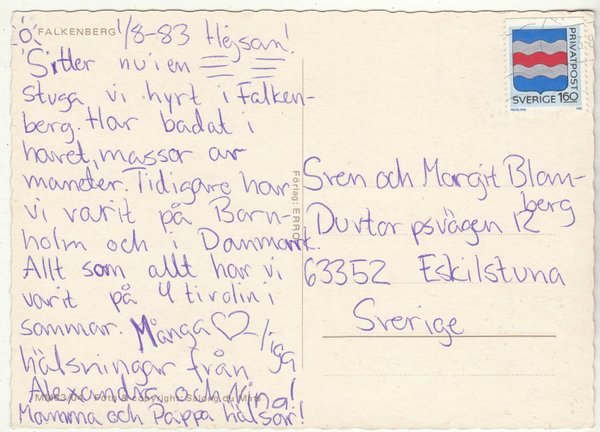 FALKENBERG 1/8-83 Hejsan!
Sitter nu i en
stuga vi hyrt i Falken-
berg. Har badat i
havet, massor av
maneter. Tidigare har
vi varit på Born-
holm och i Danmark.
Allt som allt har vi
varit på 4 tivolin i
sommar. Många ♡ liga
hälsningar från
Alexandra och Nina!
Mamma och Pappa hälsar!
Förlag: ERRO
PRIVATPOST
SVERIGE 150
Sven och Margit Blom-
berg
Duvtorpsvägen 12
63352 Eskilstuna
Sverige